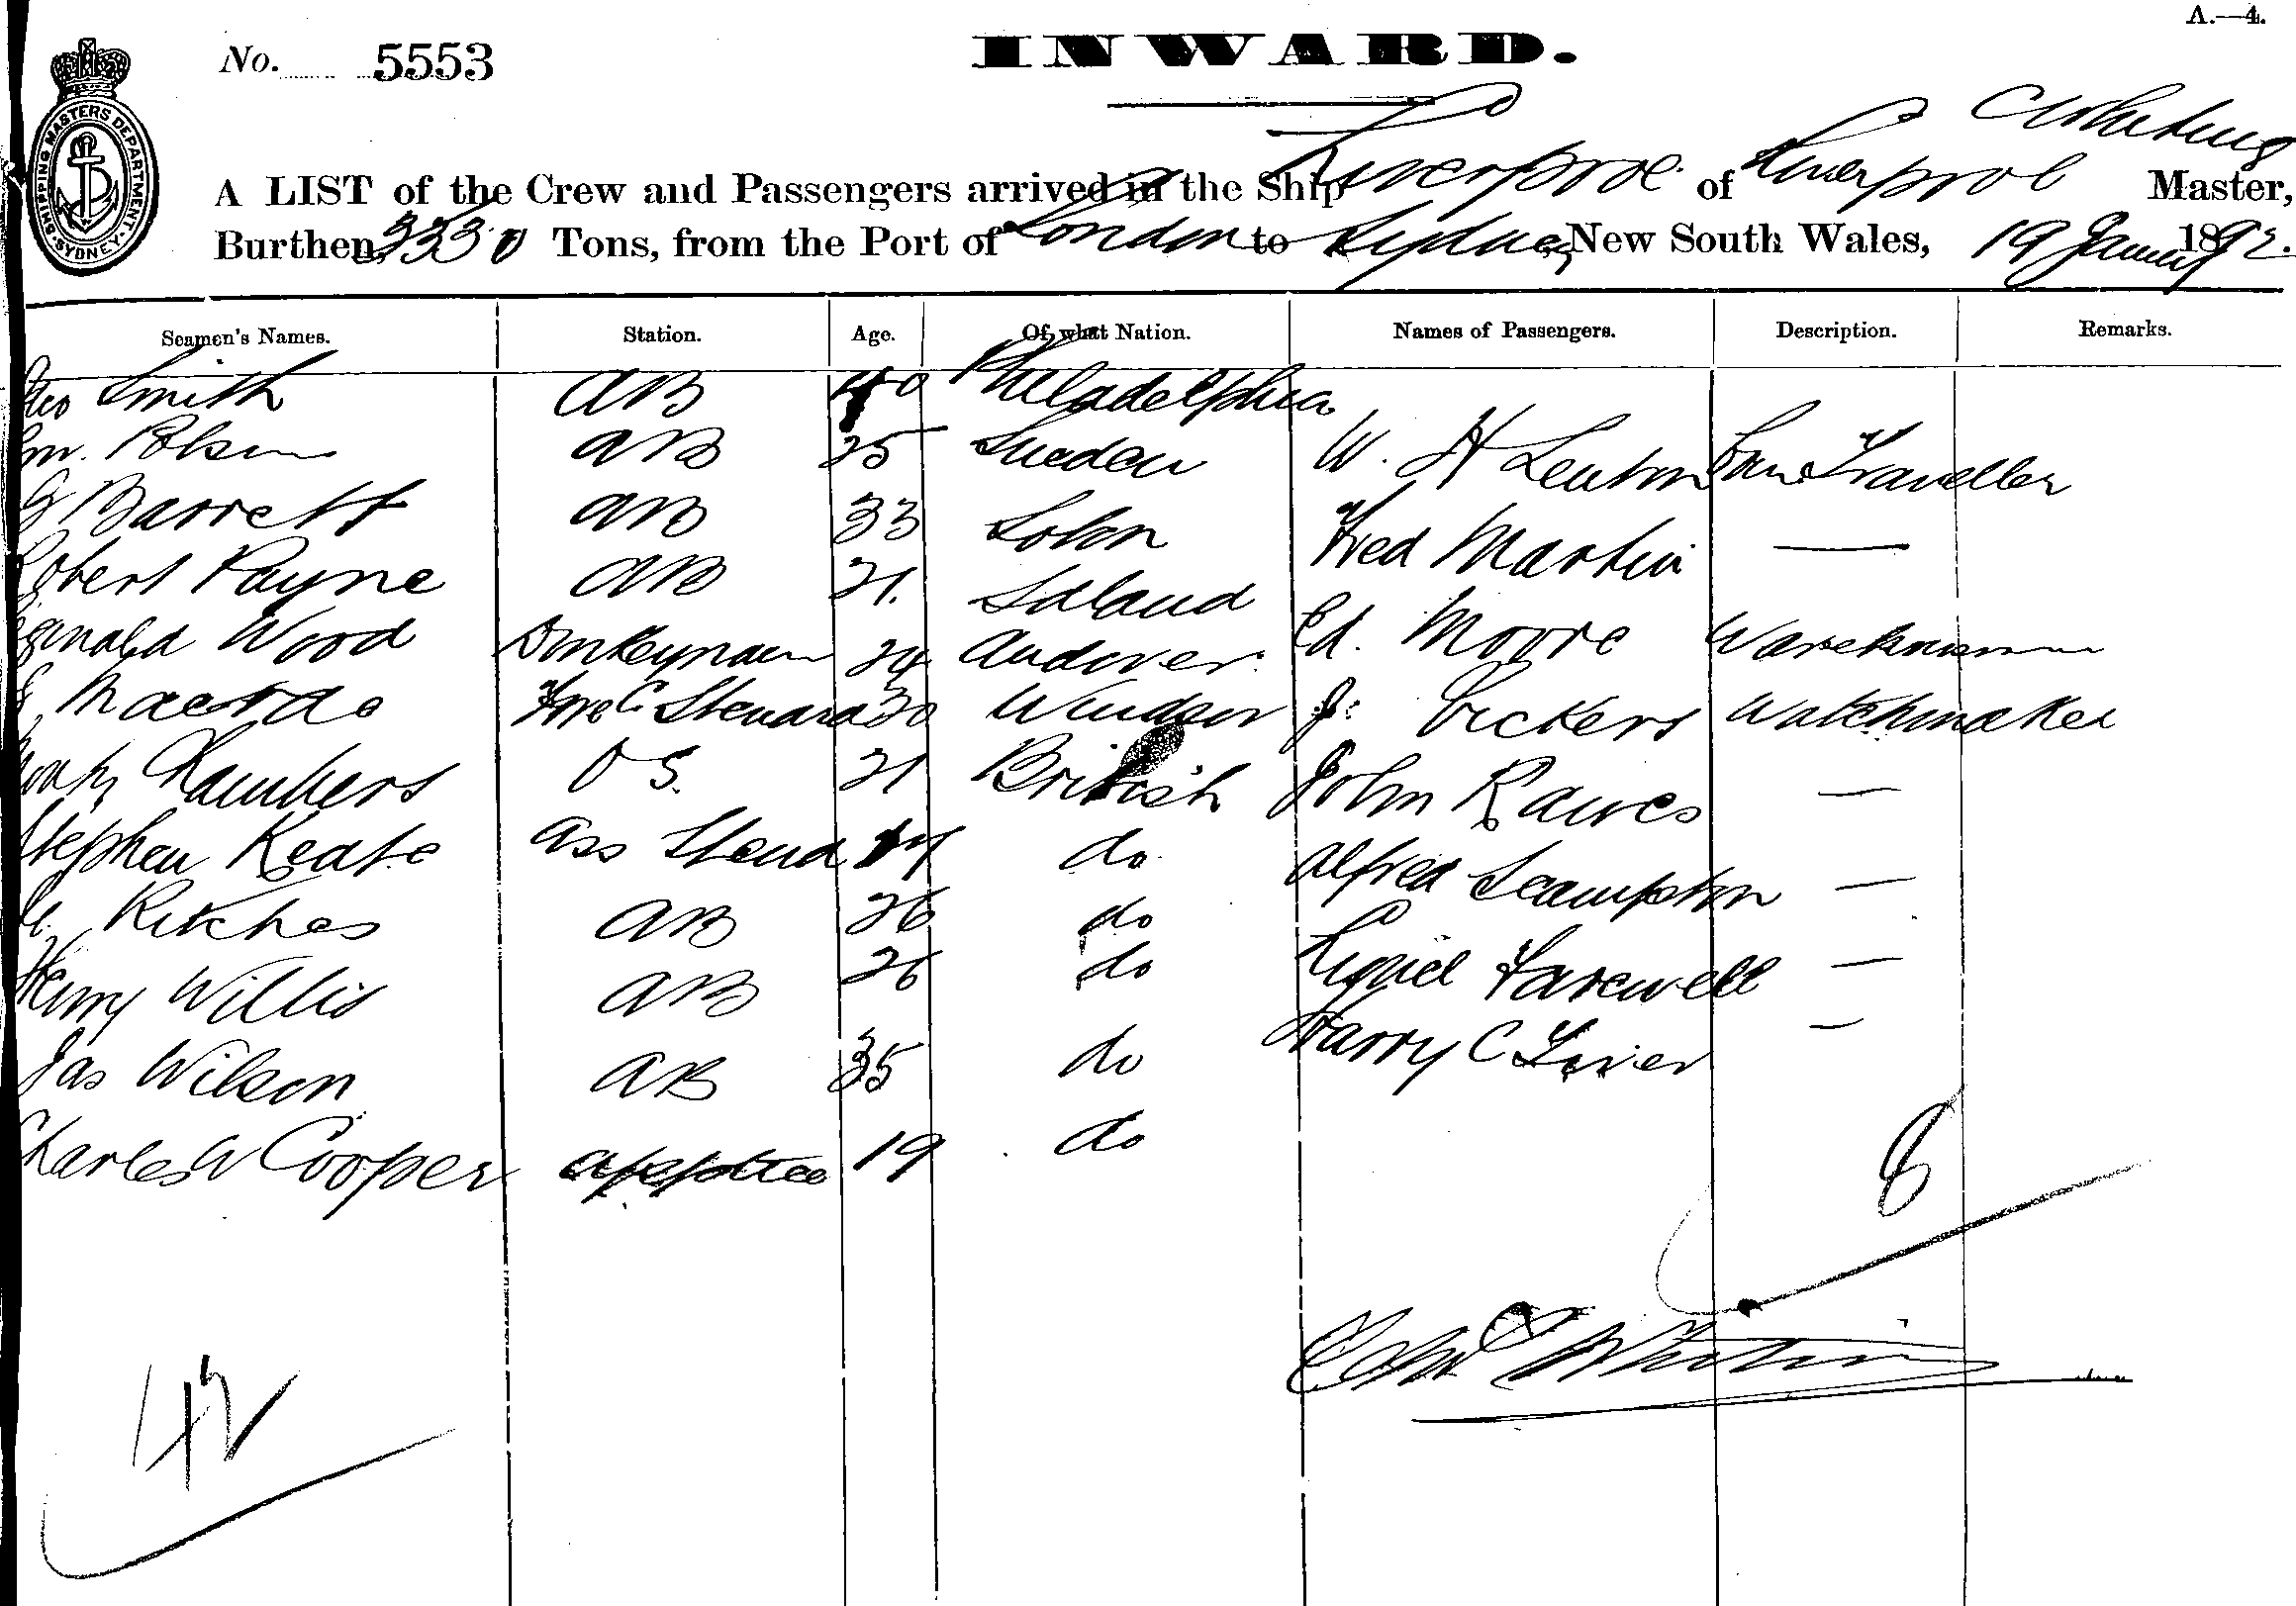 A.—4.
No. 5553
INWARD.
SHIPPING MASTERS DEPARTMENT
SYDNEY
A LIST of the Crew and Passengers arrived in the Ship Liverpool of Liverpool Master,
Burthen, 3330 Tons, from the Port of London to Sydney, New South Wales, 19 January 1892.
Seamen's Names. Station. Age. Of what Nation. Names of Passengers. Description. Remarks.
Geo Smith AB 40 Philadelphia
AB 25 Sweden W. H Lenton Traveller
G Barrett AB 33 Fred Martin —
Robert Payne AB 21. Ed. Moore Warehouseman
Reginald Wood Donkeyman 24 Andover J. Vickers Watchmaker
Steward 30 Windsor
Chambers O S. 21 British John Rawes —
Stephen Keate Ass Steward 17 do Alfred Scampton —
Ritches AB 26 do Lionel Farewell —
Henry Willis AB 26 do Harry C —
Jas Wilson AB 35 do
Charles W Cooper apptice 19 do
8
42